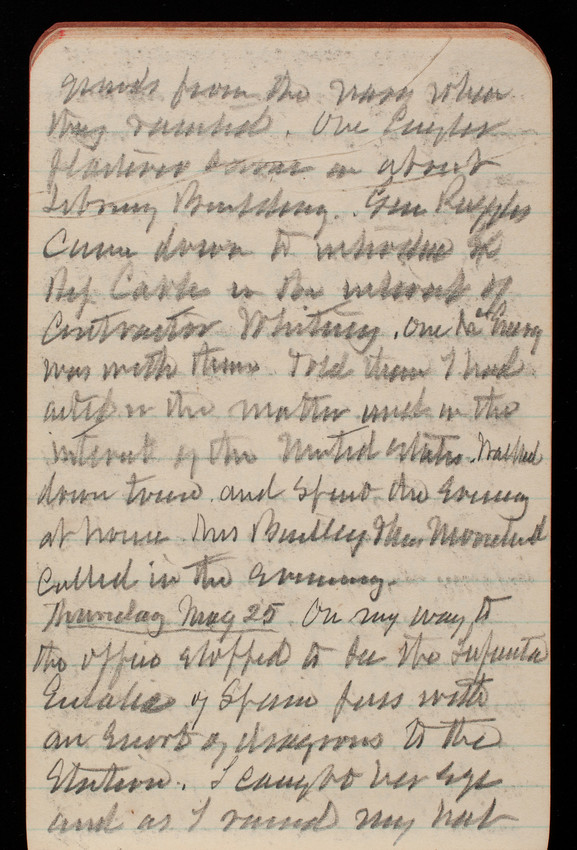 from the navy when
they vacated. One Engler
plasterer in about
Library Building. Gen Ruggles
Came down to introduce
Rep Cable in the interest of
Contractor Whitney. One McGreevy
was with them. Told them I had
acted in the matter and in the
interest of the United States. Walked
down town. and spent the evening
at home. Mrs Bentley & Mrs Moreland
called in the evening.
Thursday May 25 On my way to
the office stopped to see the Infanta
Eulalie of Spain pass with
an Escort of dragoons to the
Station. I caught her eye
and as I raised my hat